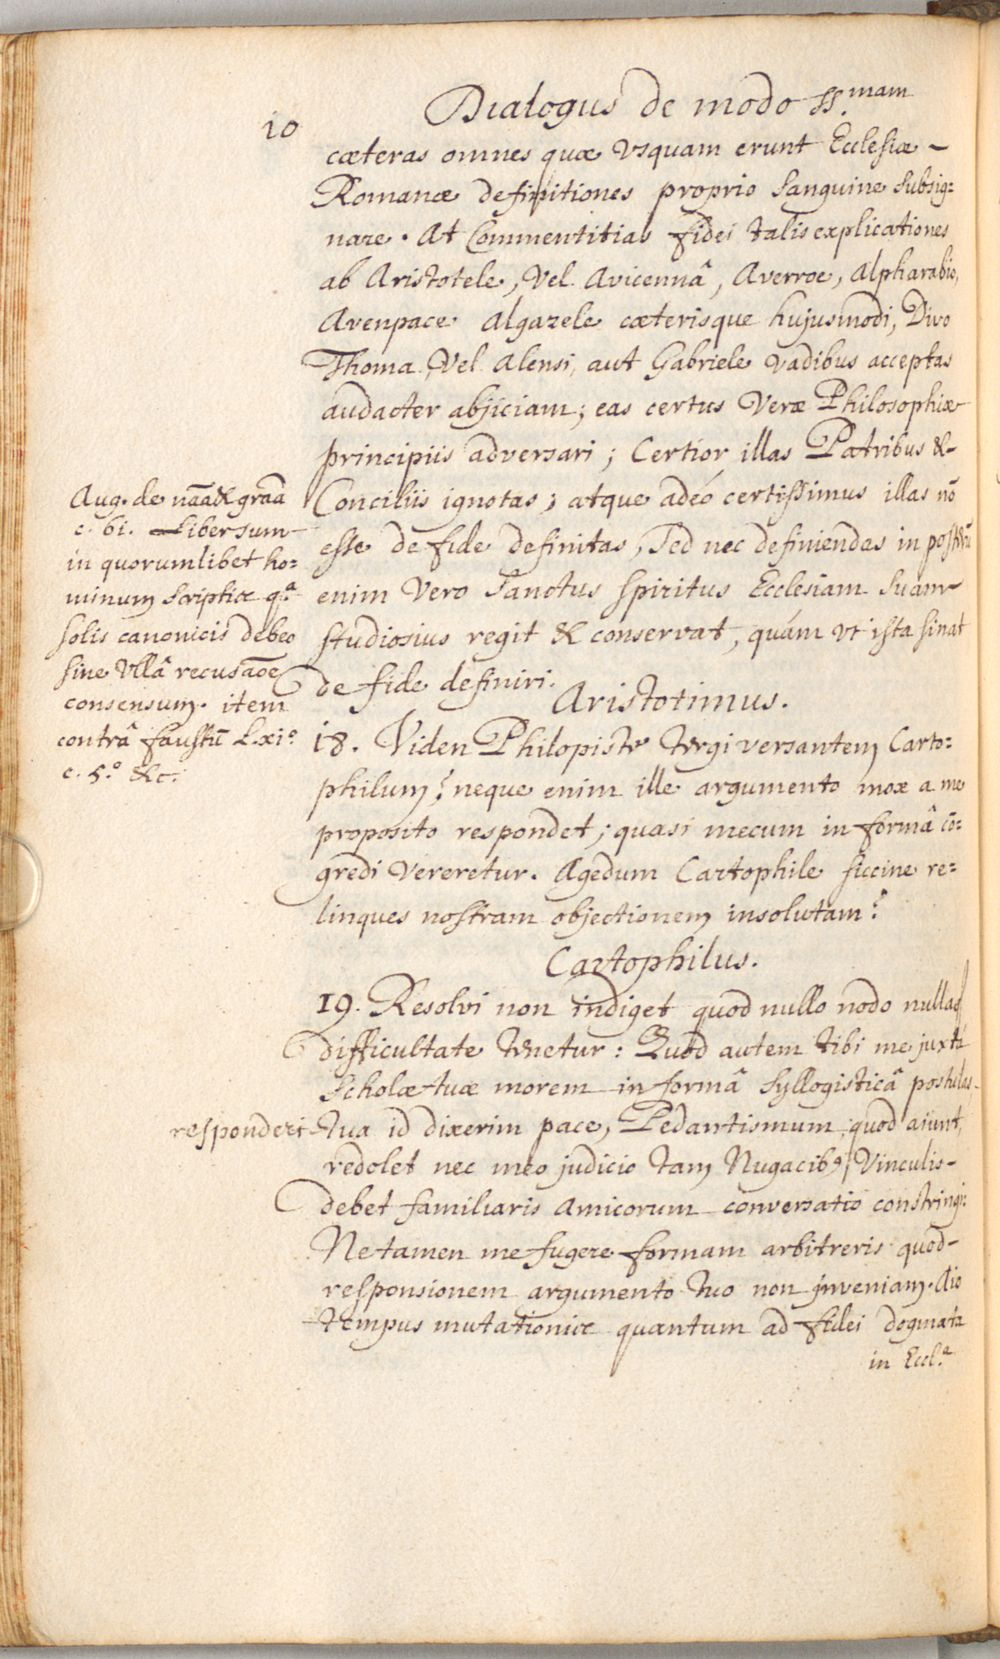 10
Dialogus de modo ss.mam
cæteras omnes quæ vsquam erunt Ecclesiæ
Romanæ definitiones proprio sanguine subsig=
nare. At Commentitias fidei talis explicationes
ab Aristotele, Vel Avicennâ, Averroe, Alpharabio,
Avenpace Algazele cæterisque hujusmodi, Divo
Thoma, Vel Alensi, aut Gabriele vadibus acceptas
audacter abjiciam; eas certus Veræ Philosophiæ
principiis adversari; Certior illas Patribus &
Conciliis ignotas; atque adeó certissimus illas nō
esse de fide definitas, sed nec definiendas in
enim Vero Sanctus spiritus Ecclesiam suam
studiosius regit & conservat, quám vt ista sinat
de fide definiri.
Aug. de nāa & graā
c. 61. Liber sum
in quorumlibet ho=
minum scriptis qa
solis canonicis debeo
sine Vllâ recusāoe
consensum. item
contrâ faustū L.xio
c. 5.o &c.
Aristotimus.
18. Viden Philopiste tergi versantem Carto=
philum? neque enim ille argumento mox a me
proposito respondet; quasi mecum in formâ cō=
gredi Vereretur. Agedum Cartophile siccine re=
linques nostram objectionem insolutam?
Cartophilus.
19. Resolvi non indiget quod nullo nodo nullaq
difficultate tenetur: Quod autem tibi me juxtá
Scholæ tuæ morem in formâ Syllogisticâ postulas
responderi tua id dixerim pace, Pedantismum, quod aiunt,
redolet nec meo judicio tam Nugacibꝰ Vinculis
debet familiaris Amicorum conversatio constringi:
Ne tamen me fugere formam arbitreris quod
responsionem argumento tuo non jnveniam. Aio
tempus mutationis quantum ad fidei dogmata
in Eccl.a